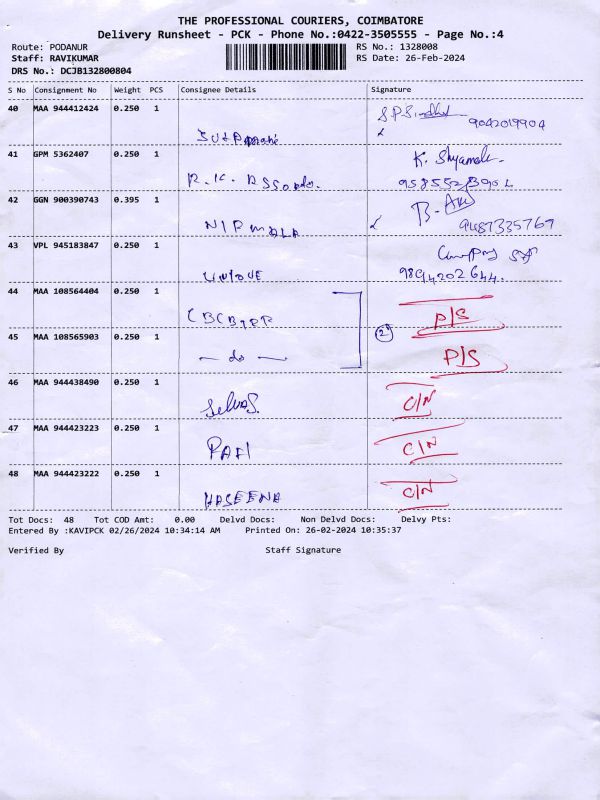 THE PROFESSIONAL COURIERS, COIMBATORE
Delivery Runsheet - PCK - Phone No.:0422-3505555 - Page No.:4
Route: PODANUR RS No.: 1328008
Staff: RAVIKUMAR RS Date: 26-Feb-2024
DRS No.: DCJB132800804
S No Consignment No Weight PCS Consignee Details Signature
40 MAA 944412424 0.250 1 9042019904
41 GPM 5362407 0.250 1 R.K. K. Shyamala
42 GGN 900390743 0.395 1 NIRMALA B. 9487335769
43 VPL 945183847 0.250 1 UNIQUE 9894202644.
44 MAA 108564404 0.250 1 P/S
45 MAA 108565903 0.250 1 — do — 2 P/S
46 MAA 944438490 0.250 1 Selva S. C/N
47 MAA 944423223 0.250 1 RAFI C/N
48 MAA 944423222 0.250 1 HASEENA C/N
Tot Docs: 48 Tot COD Amt: 0.00 Delvd Docs: Non Delvd Docs: Delvy Pts:
Entered By :KAVIPCK 02/26/2024 10:34:14 AM Printed On: 26-02-2024 10:35:37
Verified By Staff Signature